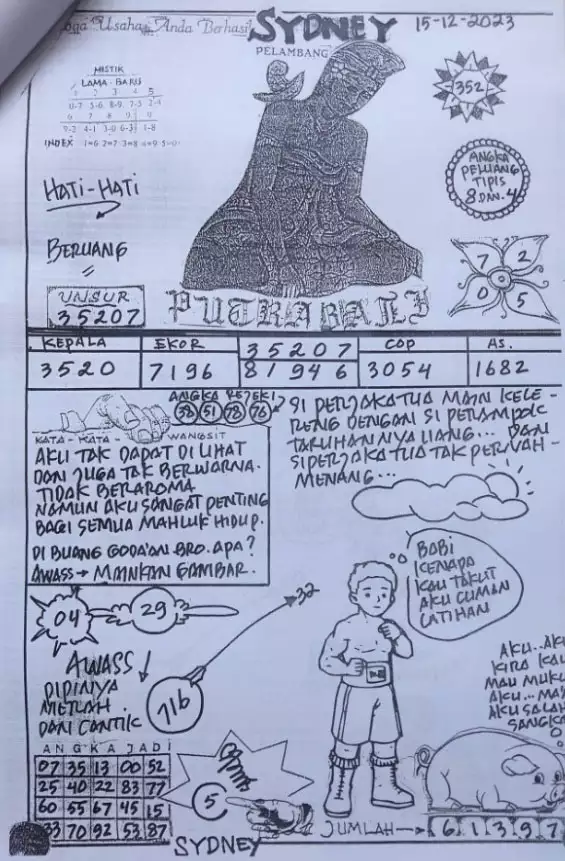 Usaha Anda Berhasil
SYDNEY
15-12-2023
PELAMBANG
MISTIK
LAMA - BARU
2 3 4 5
0-7 5-6 8-9 7-5 2-4
6 7 8 9 9
9-2 4-1 3-0 6-3 1-8
INDEX 1=6 2=7 3=8 4=9 5=0
352
ANGKA
PELUANG
TIPIS
8 DAN 4
HATI-HATI
BERUANG
7 2
0 5
UNSUR
35207
PUTRA BALI
KEPALA EKOR 35207 COP AS.
3520 7196 81946 3054 1682
ANGKA REJEKI
38 51 78 76
KATA - KATA - WANGSIT
AKU TAK DAPAT DI LIHAT
DAN JUGA TAK BERWARNA.
TIDAK BERAROMA
NAMUN AKU SANGAT PENTING
BAGI SEMUA MAHLUK HIDUP.
DI BUANG GODA'AN BRO. APA?
AWASS → MAINKAN GAMBAR.
SI PERJAKA TUA MAIN KELE-
RENG DENGAN SI PERAMPOK
TARUHANNYA UANG... DAN
SI PERJAKA TUA TAK PERNAH-
MENANG...
BABI
KENAPA
KAU TAKUT
AKU CUMAN
LATIHAN
04
29
32
716
AWASS
DIDINYA
MERAH
DAN CANTIK
AKU..AKU
KIRA KAU
MAU MUKUL
AKU..
AKU SALAH
SANGKA
ANGKA JADI
07 35 13 00 52
25 40 22 83 77
60 55 67 45 15
33 70 92 53 87
5
SYDNEY
JUMLAH → 6 1 3 9 7